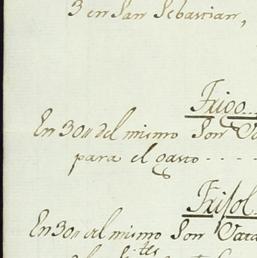 3 en San Sebastian,
Trigo...
En 30 " del mismo Son Va
para el gasto - - - -
Frisol
En 30 " del mismo Son Vata